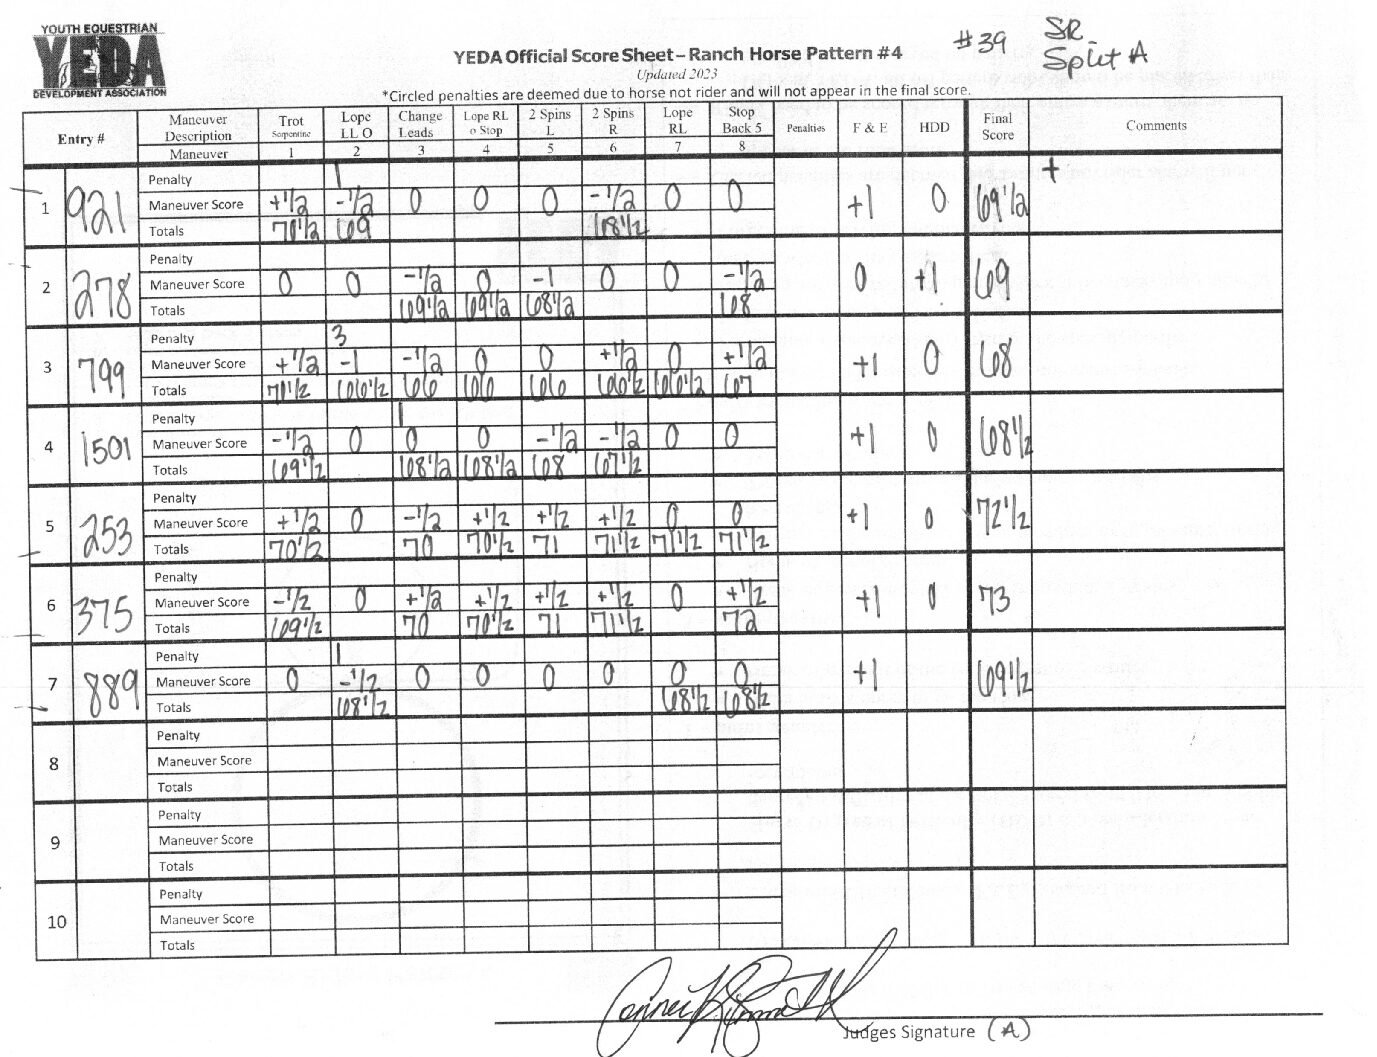 YOUTH EQUESTRIAN
YEDA
DEVELOPMENT ASSOCIATION
YEDA Official Score Sheet – Ranch Horse Pattern #4
#39 SR
Split A
Updated 2023
*Circled penalties are deemed due to horse not rider and will not appear in the final score.
Entry # Maneuver Description Trot Serpentine Lope LL O Change Leads Lope RL o Stop 2 Spins L 2 Spins R Lope RL Stop Back 5 Penalties F & E HDD Final Score Comments
Maneuver 1 2 3 4 5 6 7 8
1 921
Penalty 1 +
Maneuver Score +1/2 -1/2 0 0 0 -1/2 0 0 +1 0 69 1/2
Totals 70 1/2 69 68 1/2
2 278
Penalty
Maneuver Score 0 0 -1/2 0 -1 0 0 -1/2 0 +1 69
Totals 69 1/2 69 1/2 68 1/2 68
3 799
Penalty 3
Maneuver Score +1/2 -1 -1/2 0 0 +1/2 0 +1/2 +1 0 68
Totals 70 1/2 66 1/2 66 66 66 66 1/2 66 1/2 67
4 1501
Penalty 1
Maneuver Score -1/2 0 0 0 -1/2 -1/2 0 0 +1 0 68 1/2
Totals 69 1/2 68 1/2 68 1/2 68 67 1/2
5 253
Penalty
Maneuver Score +1/2 0 -1/2 +1/2 +1/2 +1/2 0 0 +1 0 72 1/2
Totals 70 1/2 70 70 1/2 71 71 1/2 71 1/2 71 1/2
6 375
Penalty
Maneuver Score -1/2 0 +1/2 +1/2 +1/2 +1/2 0 +1/2 +1 0 73
Totals 69 1/2 70 70 1/2 71 71 1/2 72
7 889
Penalty 1
Maneuver Score 0 -1/2 0 0 0 0 0 0 +1 69 1/2
Totals 68 1/2 68 1/2 68 1/2
8
Penalty
Maneuver Score
Totals
9
Penalty
Maneuver Score
Totals
10
Penalty
Maneuver Score
Totals
Judges Signature (A)